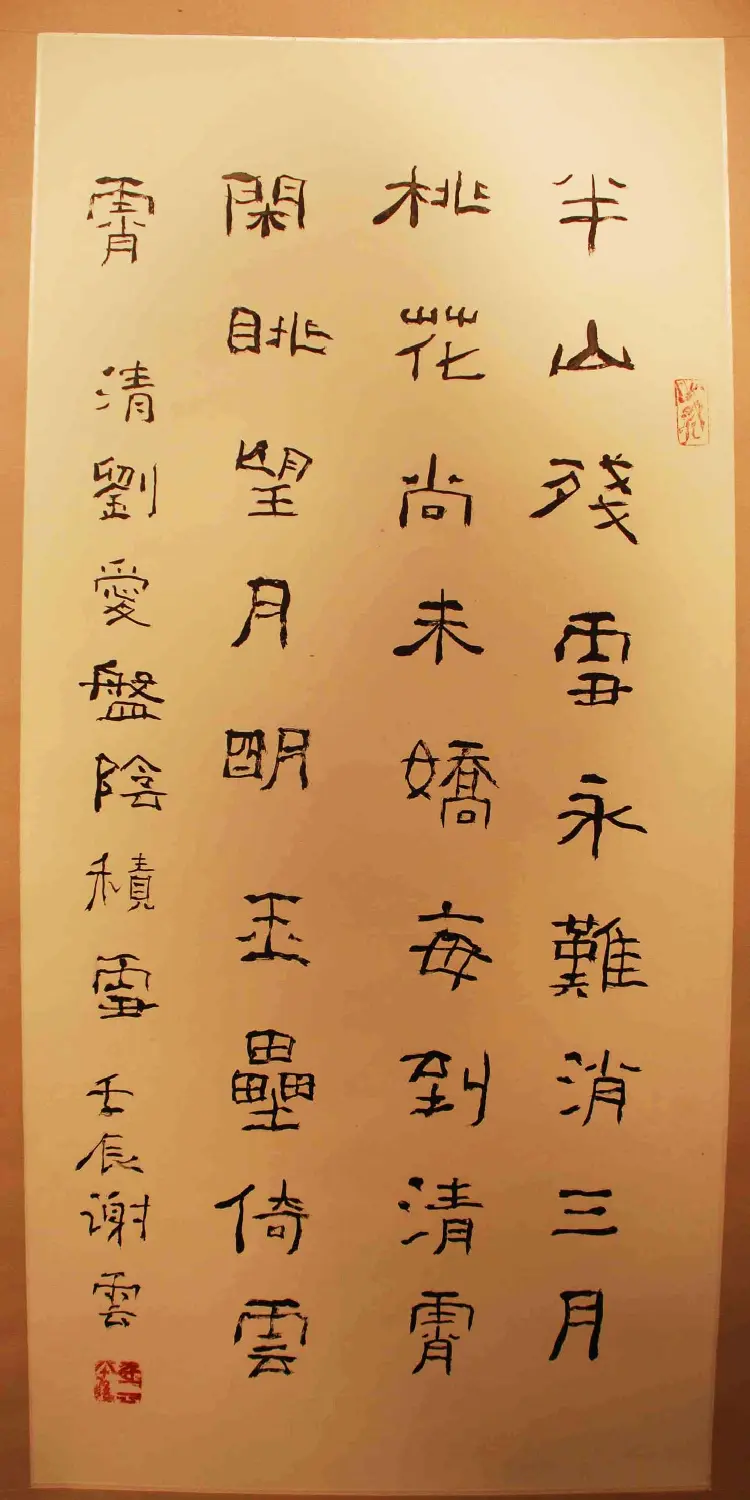 半山残雪永難消三月
桃花尚未嬌每到清霄
閑眺望月明玉壘倚雲
霄 清劉愛盤陰積雪 壬辰谢雲